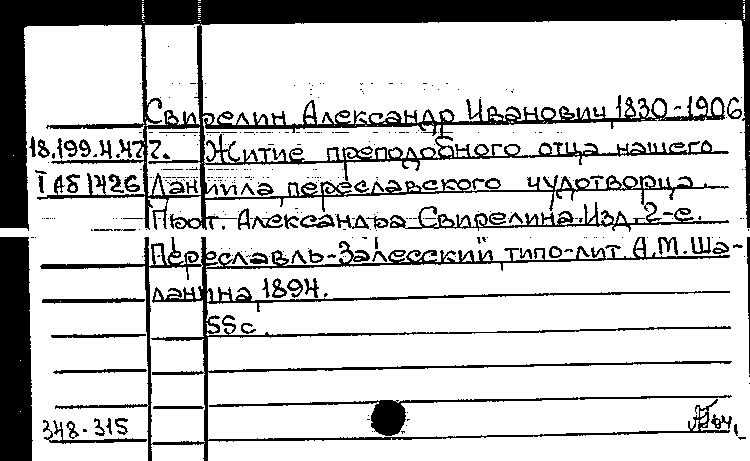 Свирелин, Александр Иванович, 1830-1906.
18.199.4.477. Житие преподобного отца нашего
I АБ 1426 Даниила, переславского чудотворца.
Прот. Александра Свирелина. Изд. 2-е.
Переславль-Залесский, типо-лит. А.М. Ша-
ланина, 1894.
55 с.
348-315